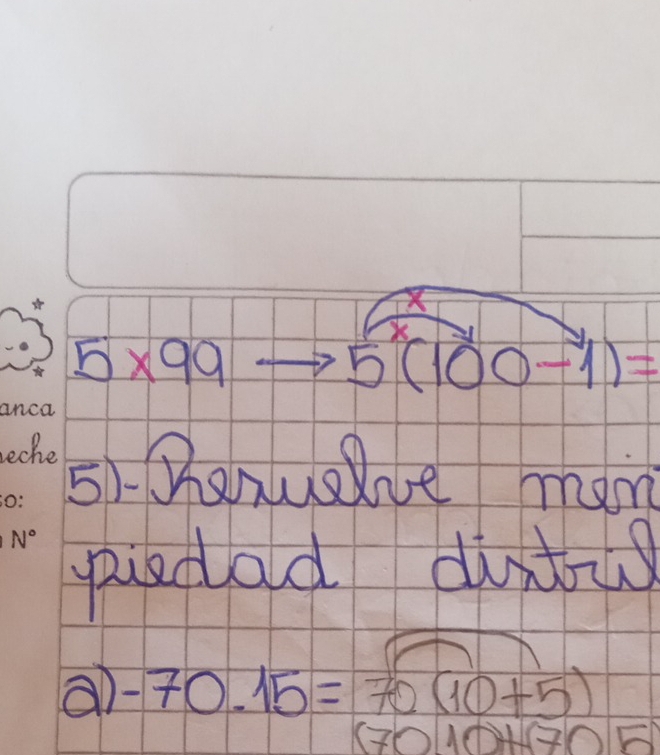 5 x 99 → 5 (100 - 1) =
anca
eche
o:
N°
5)- Resuelve men
piedad distri
a)- 70 . 15 = 70 (10 + 5)
(70.10)+(70.5)